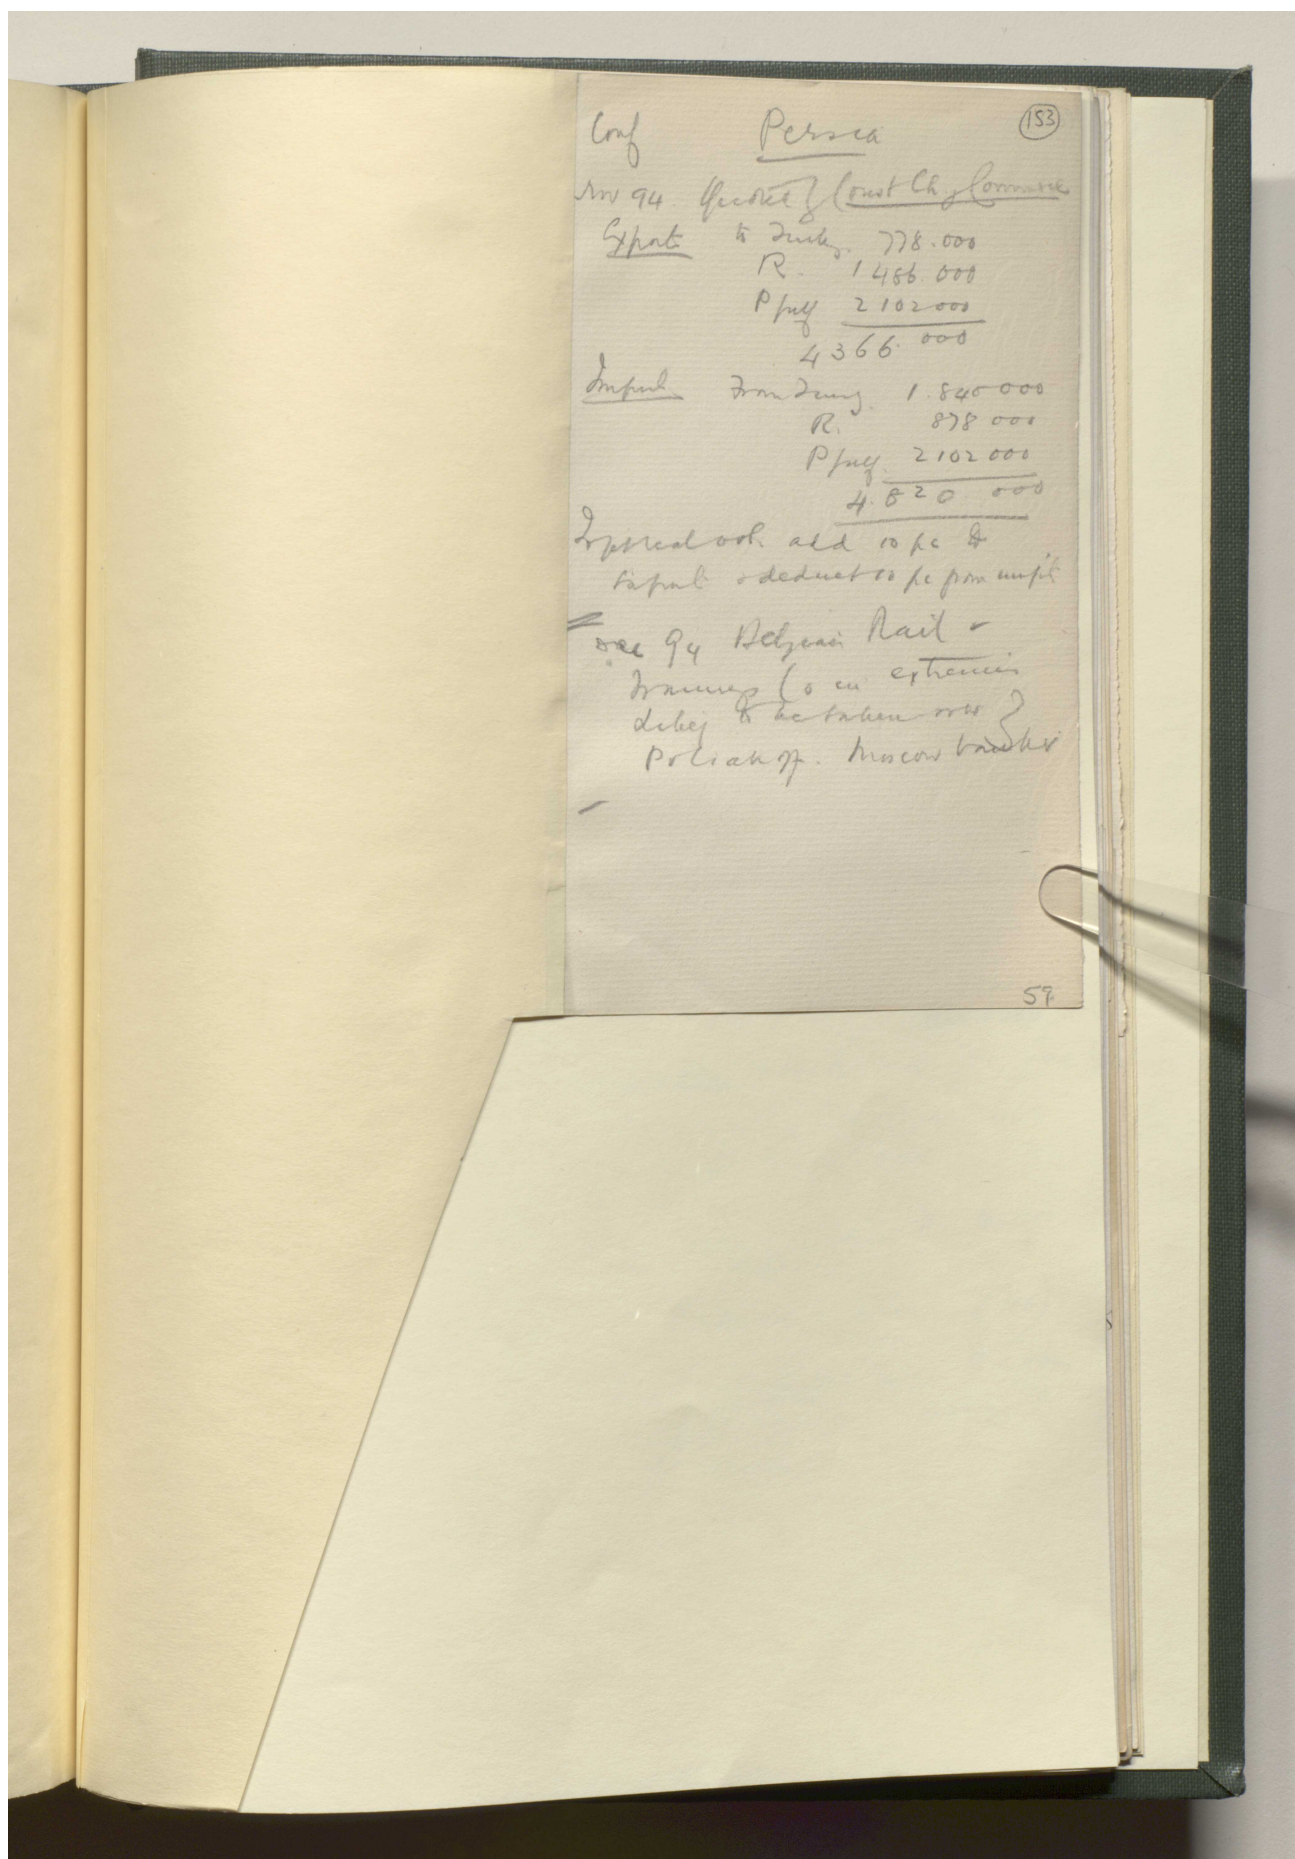 153
Conf Persia
Nov 94. Const Ch of Commerce
Exports to Turkey. 778.000
R. 1 486 000
P gulf 2 102 000
4 366. 000
Imports From Turkey. 1.840 000
R. 878 000
P gulf. 2 102 000
4.820 000
add 10 pc to
exports & deduct 10 pc from imports
Dec 94 Belgian Rail &
Tramways Co in extremis
to be taken over
Poliakoff. Moscow banker
59.